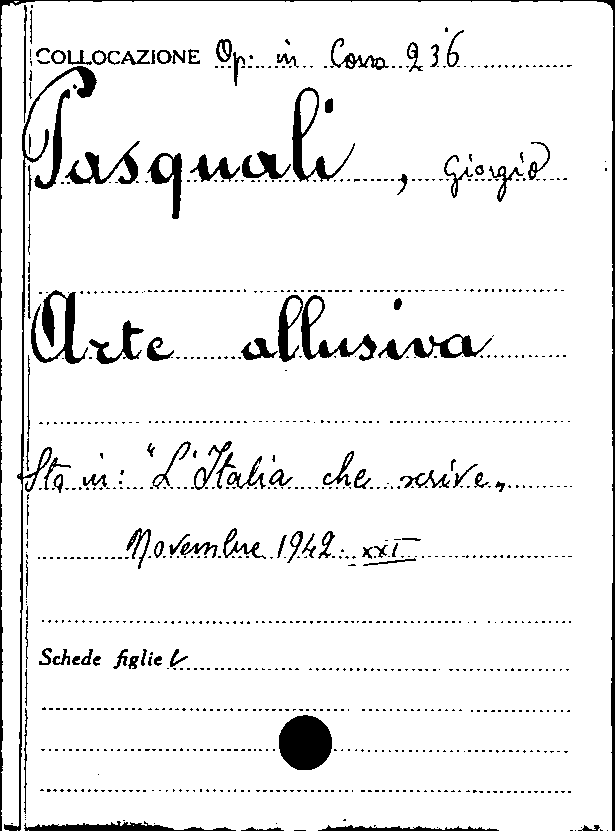 COLLOCAZIONE Op. in Corso 236
Pasquali, Giorgio
Arte allusiva
Sta in: "L'Italia che scrive„
Novembre 1942. XXI
Schede figlie